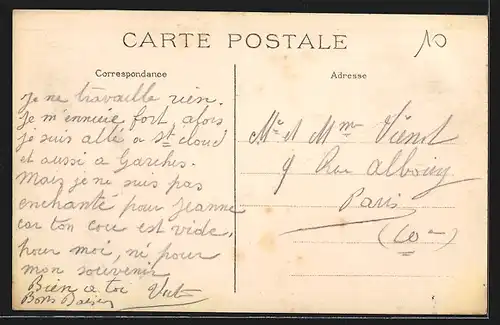 CARTE POSTALE
10
Correspondance
Je ne travaille rien.
Je m'ennuie fort, alors
je suis allé a St cloud
et aussi a Garches.
Mais je ne suis pas
enchanté pour Jeanne
car ton cou est vide.
pour moi, ni pour
mon souvenir
Bien a toi
Bons Baisers
Adresse
Mr et Mme Viénot
9 Rue Albouy
Paris
(10me)